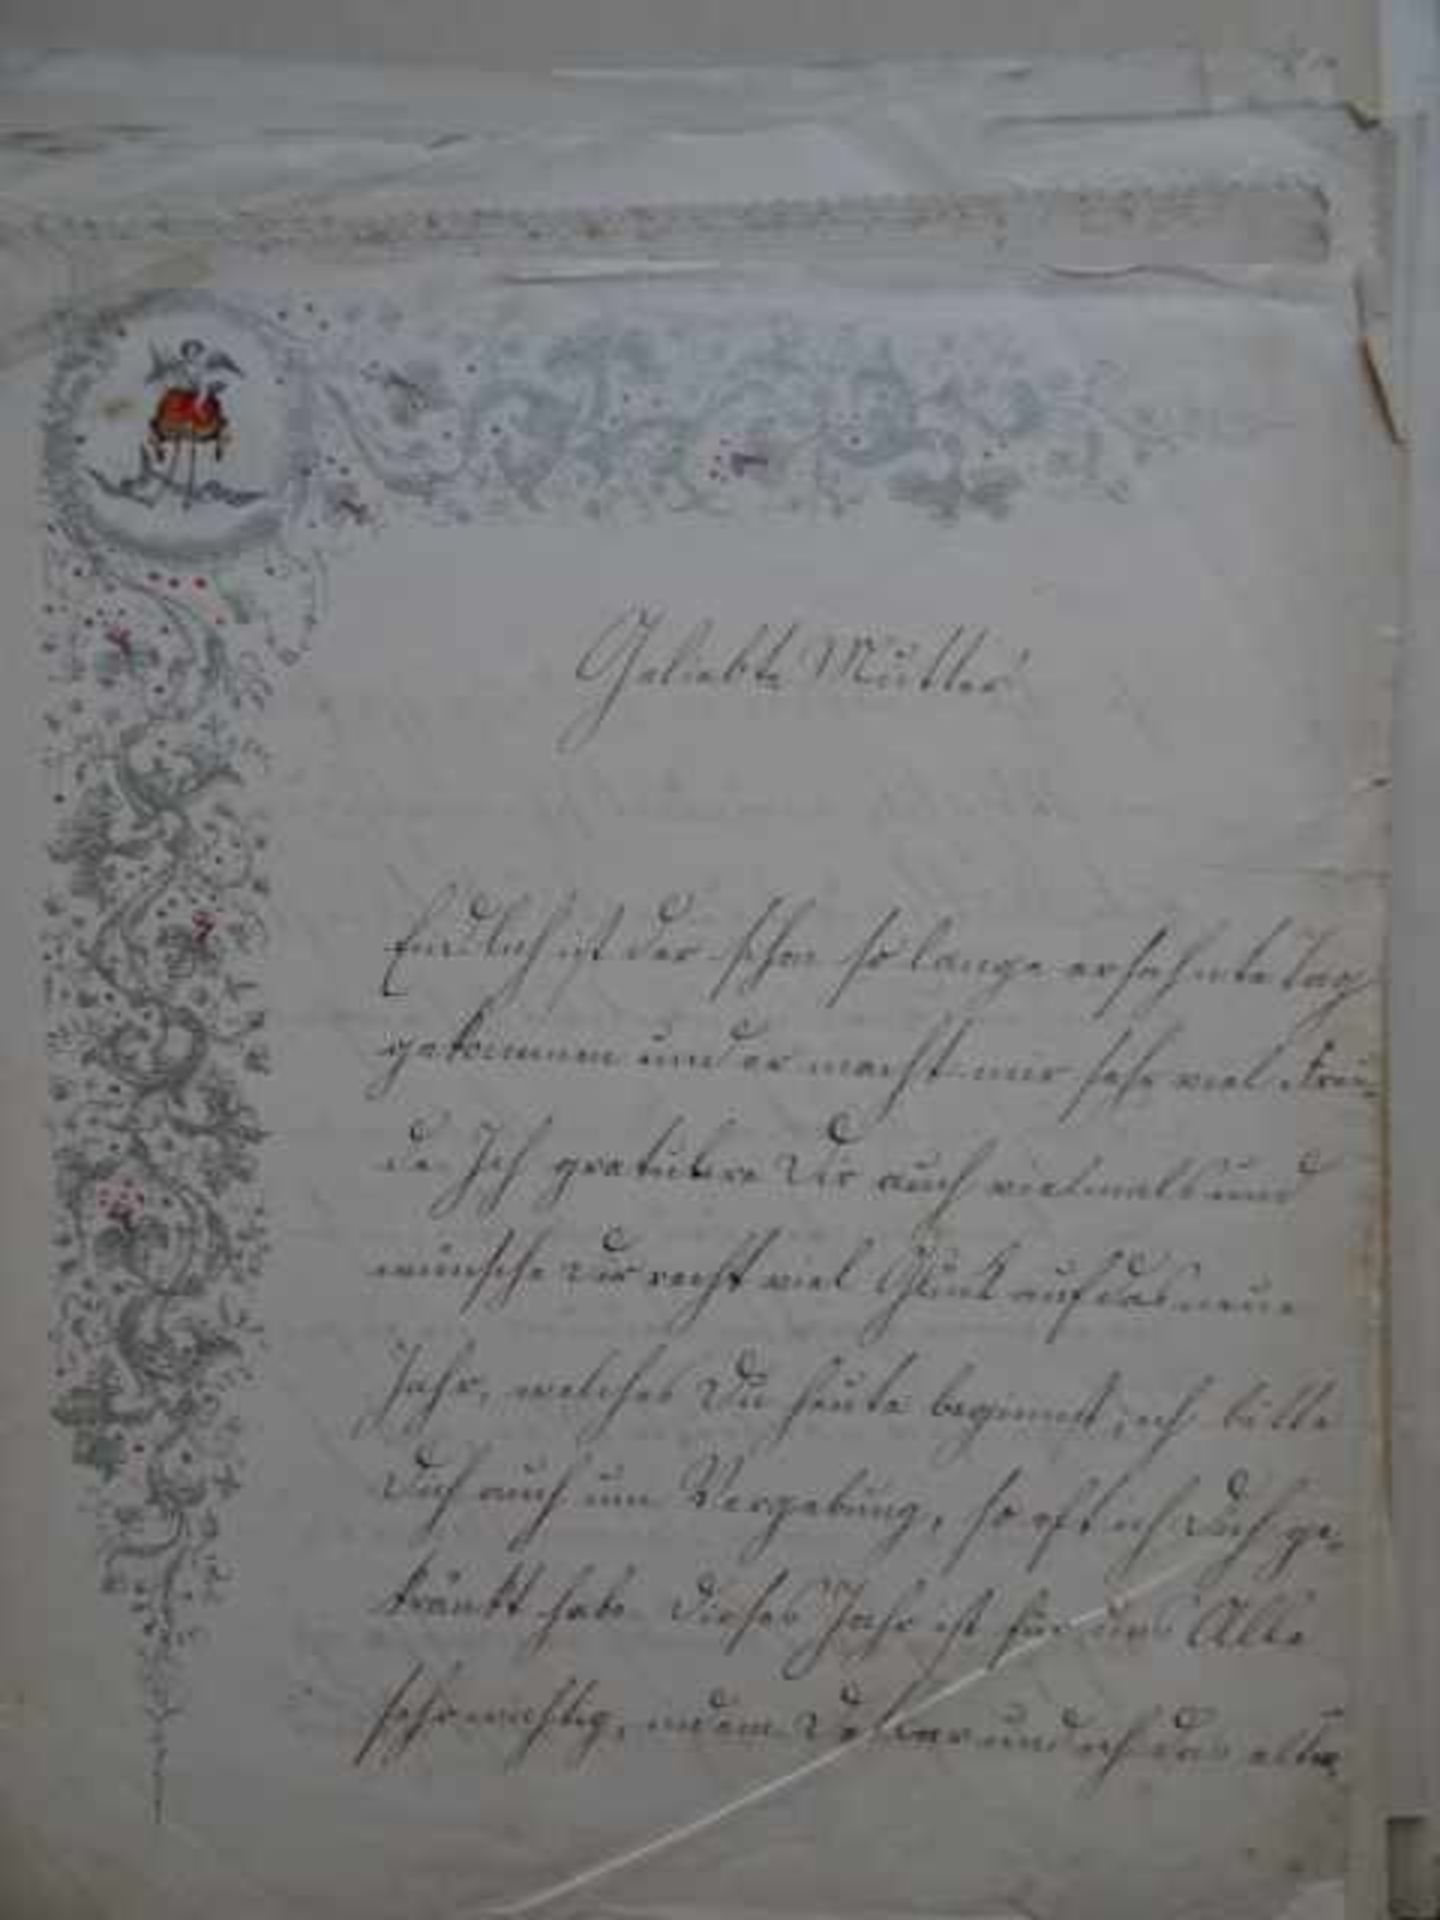 Geliebte Mutter
Endlich ist der schon so lange ersehnte Tag
gekommen und er macht mir sehr viel Freu-
de. Ich gratulire Dir auch vielmals und
wünsche Dir recht viel Glück auf das neue
Jahr, welches Du heute beginnst, ich bitte
Dich auch um Vergebung, so oft ich Dich ge-
kränkt habe. Dieses Jahr ist für uns Alle
sehr wichtig, indem und ich das